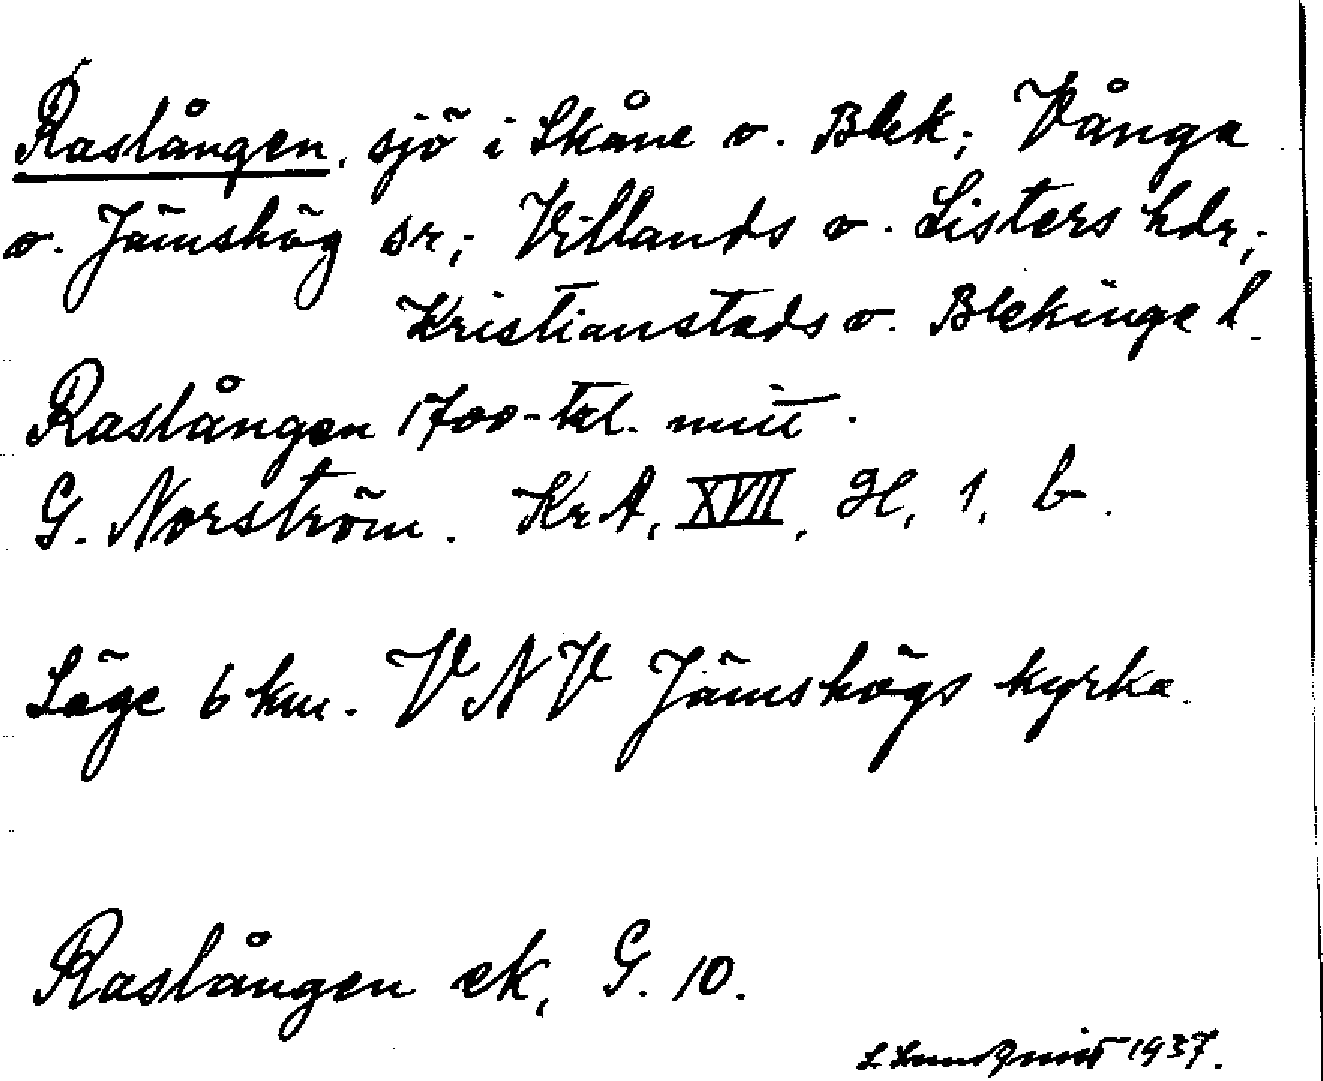 Raslången, sjö i Skåne o. Blek; Vånga
o. Jämshög sr; Villands o. Listers hdr;
Kristianstads o. Blekinge l.
Raslången 1700-tal. mitt.
G. Norström. KrA, XVII, H, 1, b.
Läge 6 km. VNV Jämshögs kyrka.
Raslången ek, G. 10.
L Lundquist 1937.